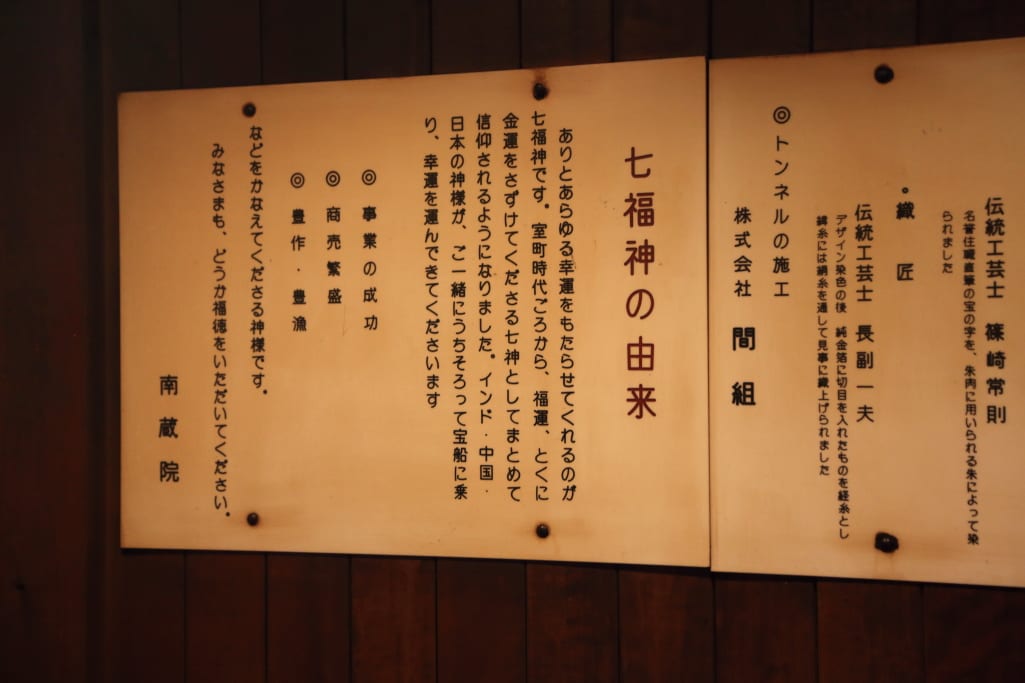 伝統工芸士 篠崎常則
名誉住職直筆の宝の字を、朱肉に用いられる朱によって染
られました
。織匠
伝統工芸士 長副一夫
デザイン染色の後 純金箔に切目を入れたものを経糸とし
緯糸には絹糸を通して見事に織上げられました
◎トンネルの施工
株式会社 間組
七福神の由来
ありとあらゆる幸運をもたらせてくれるのが
七福神です。室町時代ごろから、福運、とくに
金運をさずけてくださる七神としてまとめて
信仰されるようになりました。インド・中国・
日本の神様が、ご一緒にうちそろって宝船に乗
り、幸運を運んできてくださいます
◎ 事業の成功
◎ 商売繁盛
◎ 豊作・豊漁
などをかなえてくださる神様です。
みなさまも、どうか福徳をいただいてください。
南蔵院